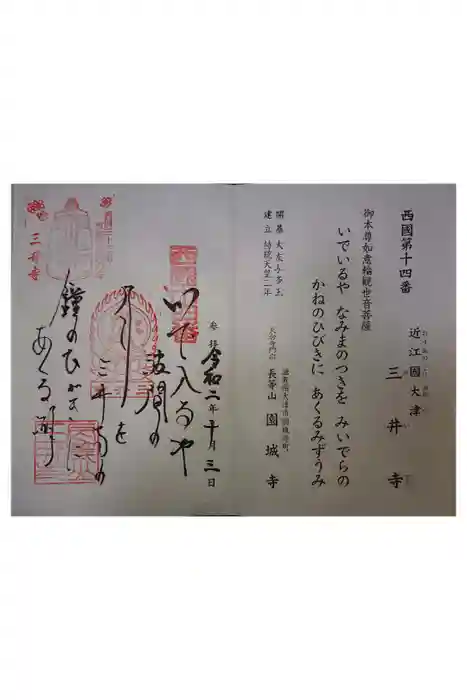 西國第十四番
近江國大津
三井寺
御本尊如意輪観世音菩薩
いでいるや なみまのつきを みいでらの
かねのひびきに あくるみずうみ
開基 大友与多王
建立 持統天皇二年
滋賀県大津市園城寺町
天台寺門宗 長等山 園城寺
奉拝 令和二年十月三日
いで入るや
波間の
月を
三井寺の
鐘のひびきに
あくる湖
三井寺